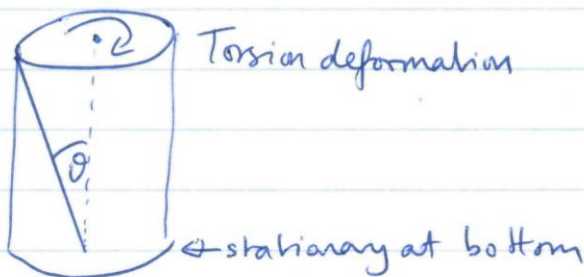 Torsion deformation
θ
← stationary at bottom